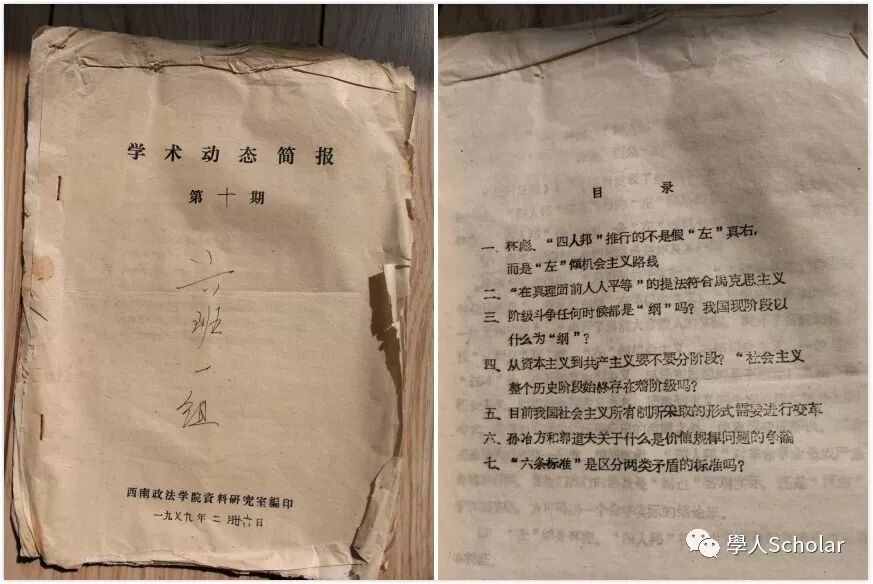 学术动态简报
第十期
六班一组
西南政法学院資料研究室編印
一九七九年二月廿六日
目录
一、林彪、“四人邦”推行的不是假“左”真右，
而是“左”倾机会主义路线
二、“在真理面前人人平等”的提法符合馬克思主义
三、阶级斗争任何时候都是“纲”吗？我国现阶段以
什么为“纲”？
四、从资本主义到共产主义要不要分阶段？“社会主义
整个历史阶段始终存在着阶级吗？
五、目前我国社会主义所有制所采取的形式需要进行变革
六、孙冶方和郭道夫关于什么是价值规律问题的争论
七、“六条标准”是区分两类矛盾的标准吗？
學人Scholar